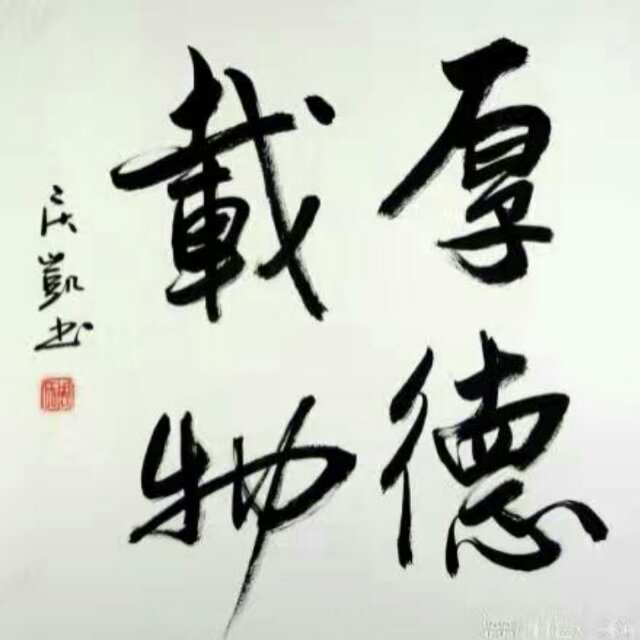 厚德
載物
凱书